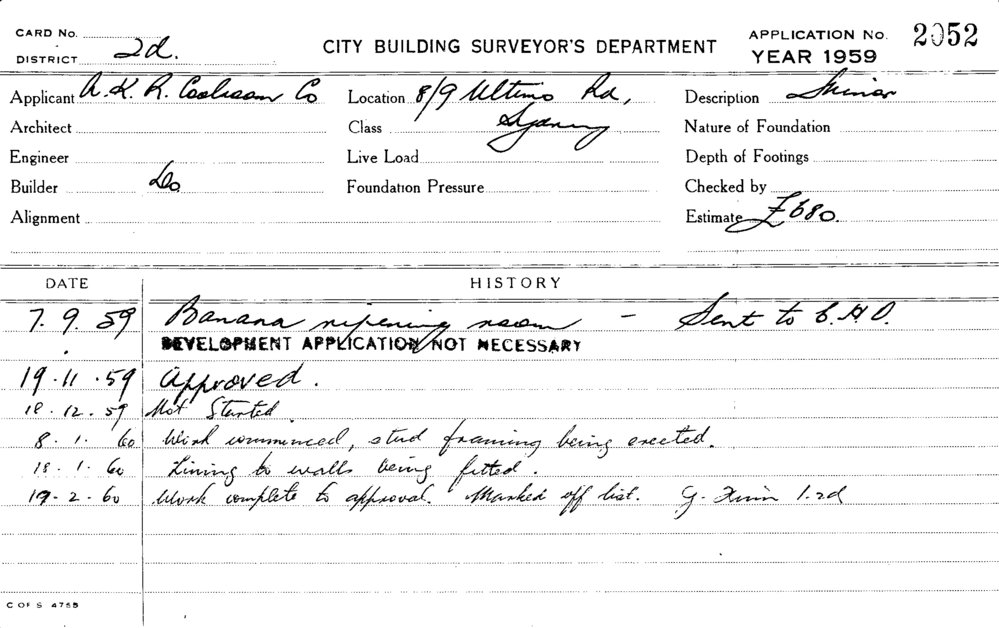 CARD No.
DISTRICT 2d.
CITY BUILDING SURVEYOR'S DEPARTMENT
APPLICATION No. 2052
YEAR 1959
Applicant A. K. R. Co
Location 8/9 Ultimo Rd,
Description Minor
Architect
Class Sydney
Nature of Foundation
Engineer
Live Load
Depth of Footings
Builder Do
Foundation Pressure
Checked by
Alignment
Estimate £680.
DATE HISTORY
7. 9. 59 Banana ripening room - Sent to C.H.O.
DEVELOPMENT APPLICATION NOT NECESSARY
19.11.59 Approved.
18.12.59 Not Started
8.1.60 Work commenced, stud framing being erected.
18.1.60 Lining to walls being fitted.
19.2.60 Work complete to approval. Marked off list. G.
C OF S 4755